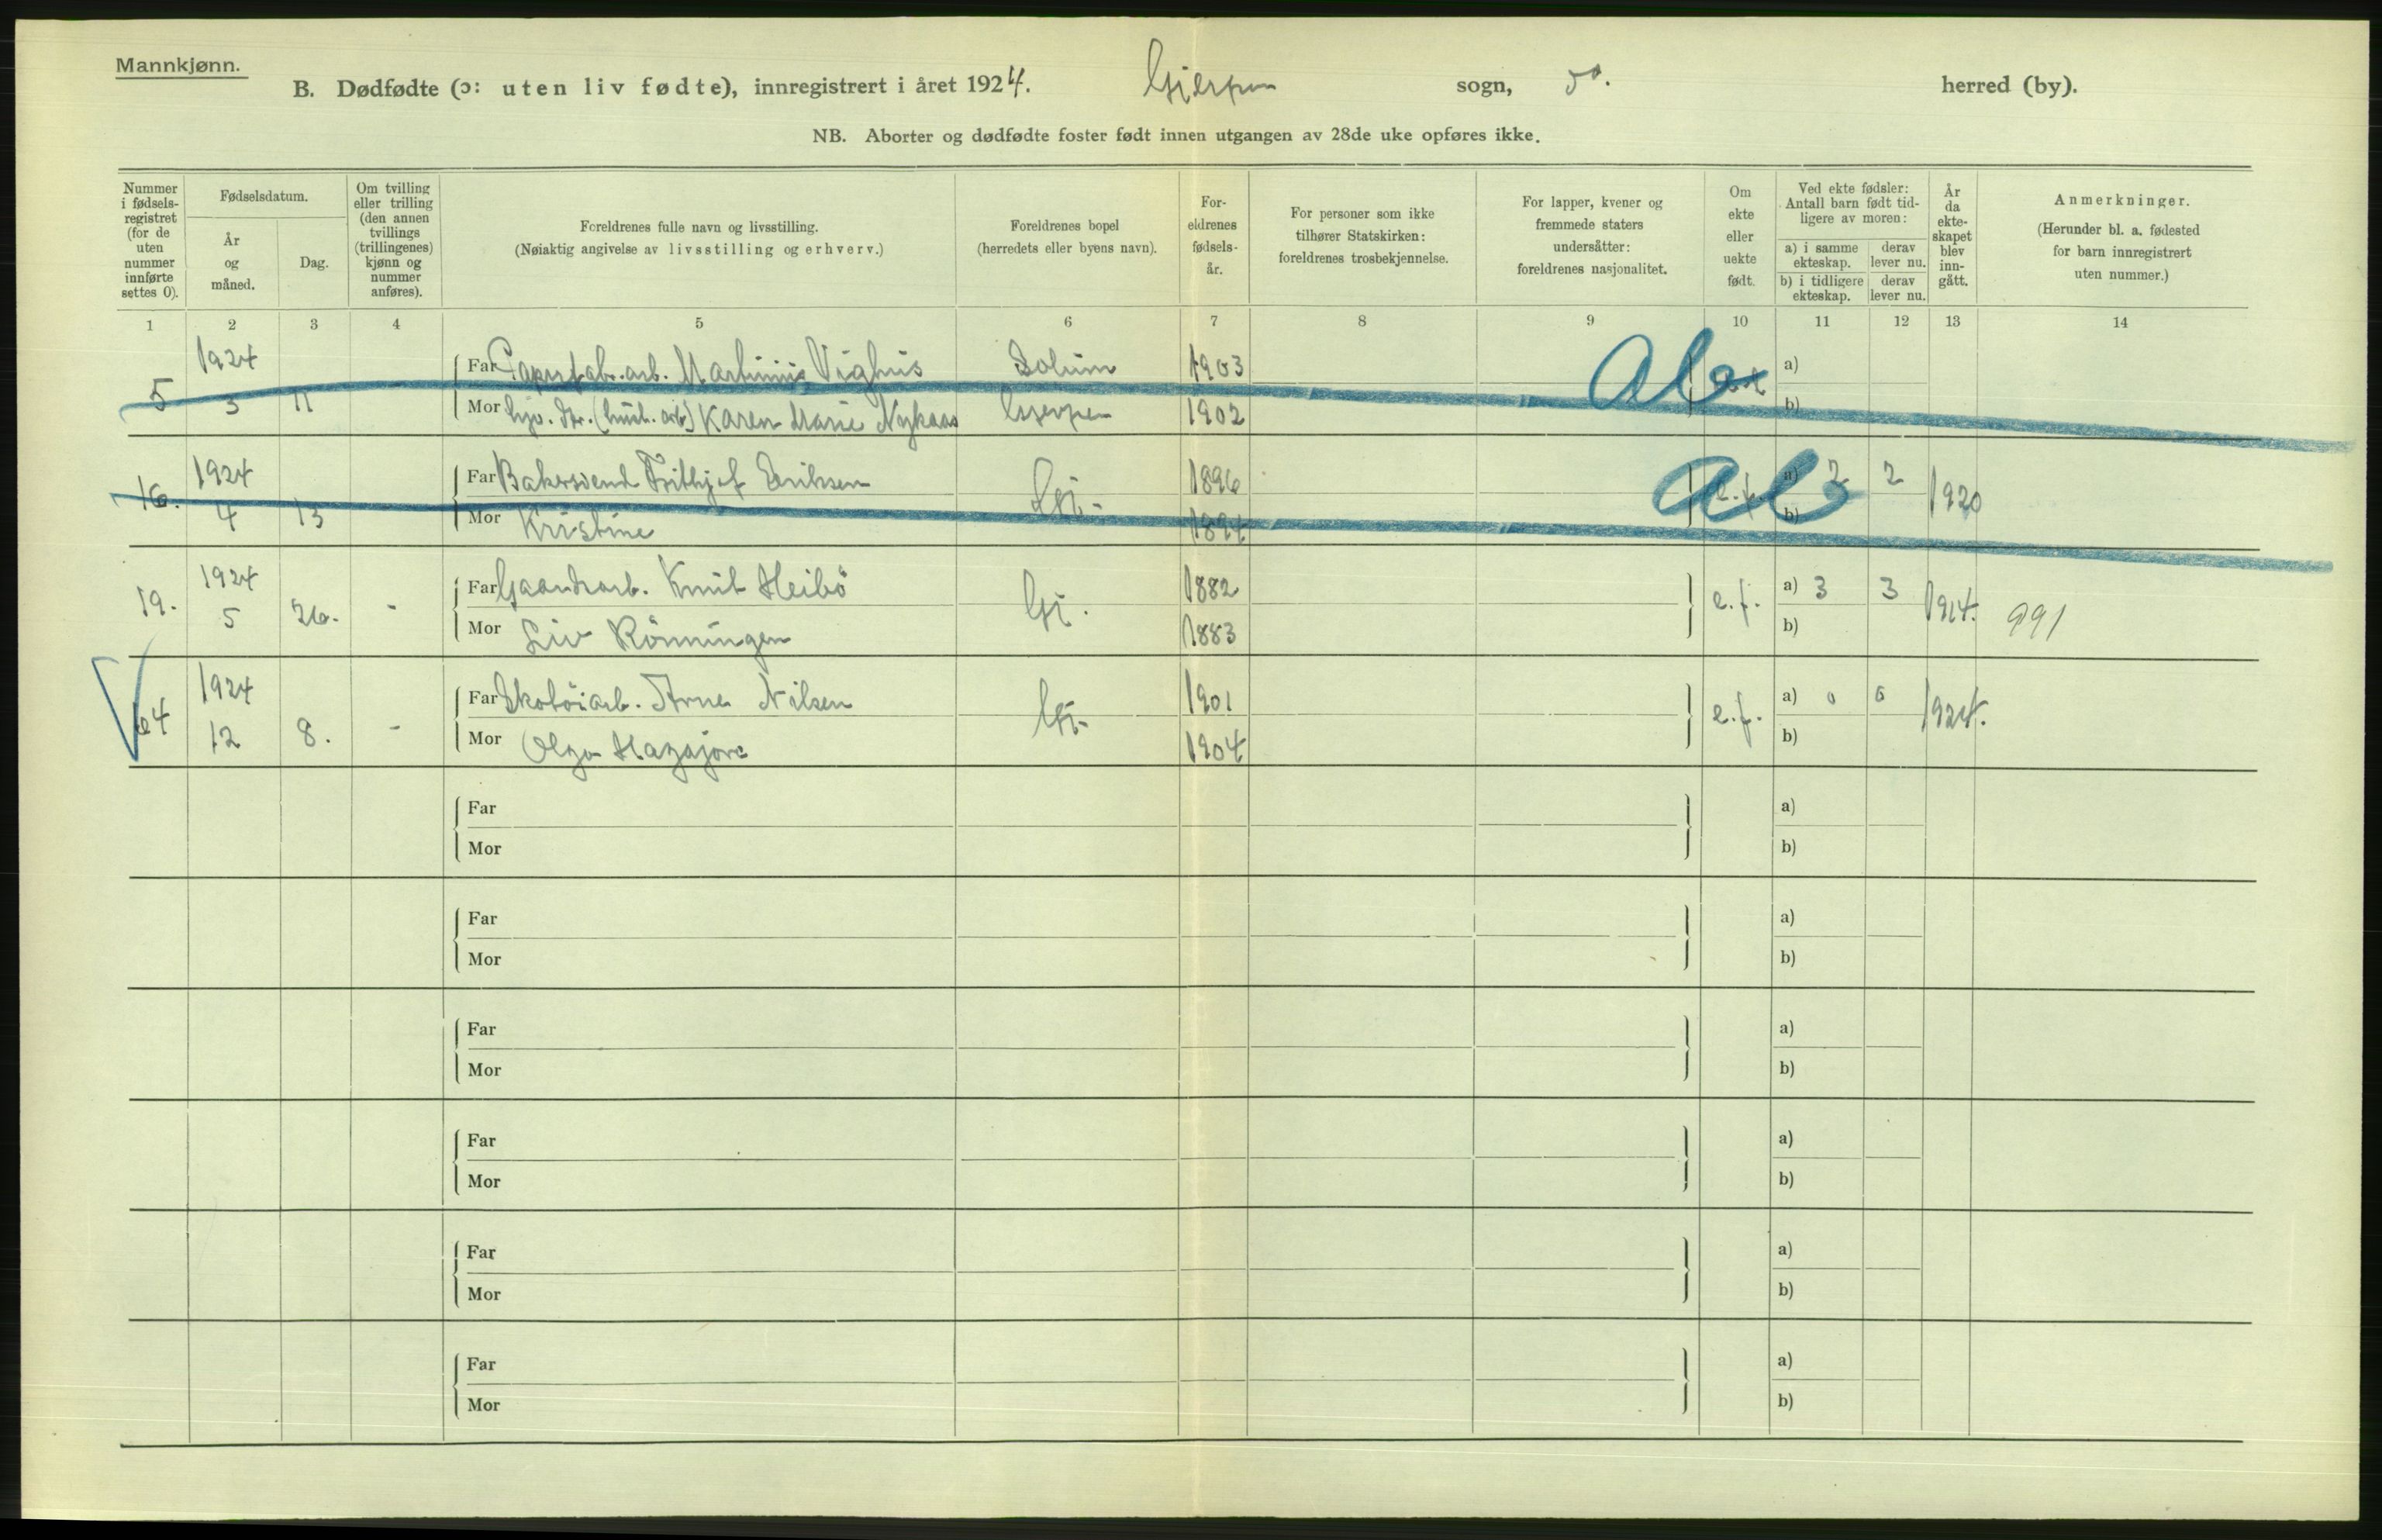 Mannkjønn.
B. Dødfødte (ɔ: uten liv fødte), innregistrert i året 1924. Gjerpen sogn, do. herred (by).
NB. Aborter og dødfødte foster født innen utgangen av 28de uke opføres ikke.
Nummer i fødsels-registret (for de uten nummer innførte settes 0).
Fødselsdatum.
År og måned.
Dag.
Om tvilling eller trilling (den annen tvillings (trillingenes) kjønn og nummer anføres).
Foreldrenes fulle navn og livsstilling.
(Nøiaktig angivelse av livsstilling og erhverv.)
Foreldrenes bopel
(herredets eller byens navn).
For-eldrenes fødsels-år.
For personer som ikke tilhører Statskirken: foreldrenes trosbekjennelse.
For lapper, kvener og fremmede staters undersåtter: foreldrenes nasjonalitet.
Om ekte eller uekte født.
Ved ekte fødsler: Antall barn født tid-ligere av moren:
a) i samme ekteskap. derav lever nu.
b) i tidligere ekteskap. derav lever nu.
År da ekte-skapet blev inn-gått.
Anmerkninger.
(Herunder bl. a. fødested for barn innregistrert uten nummer.)
1 2 3 4 5 6 7 8 9 10 11 12 13 14
1924 Far Martinius Vighus Solum 1903 a)
5 3 11 Mor Karen Marie Nykaas Gjerpen 1902 b)
1924 Far Bakersvend Frithjof Eriksen Gj. 1896 e.f. a) 2 2 1920
16. 4 13 Mor Kristine 1894 b)
1924 Far Gaardsarb. Knut Heibö 1882 a) 3 3
19. 5 26. - Mor Liv Rönningen Gj. 1883 e.f. b) 1914. 991
1924 Far Skotöiarb. Arne Nilsen 1901 a) 0 0
64 12 8. - Mor Olga Gj. 1904 e.f. b) 1924.
Far a)
Mor b)
Far a)
Mor b)
Far a)
Mor b)
Far a)
Mor b)
Far a)
Mor b)
Far a)
Mor b)